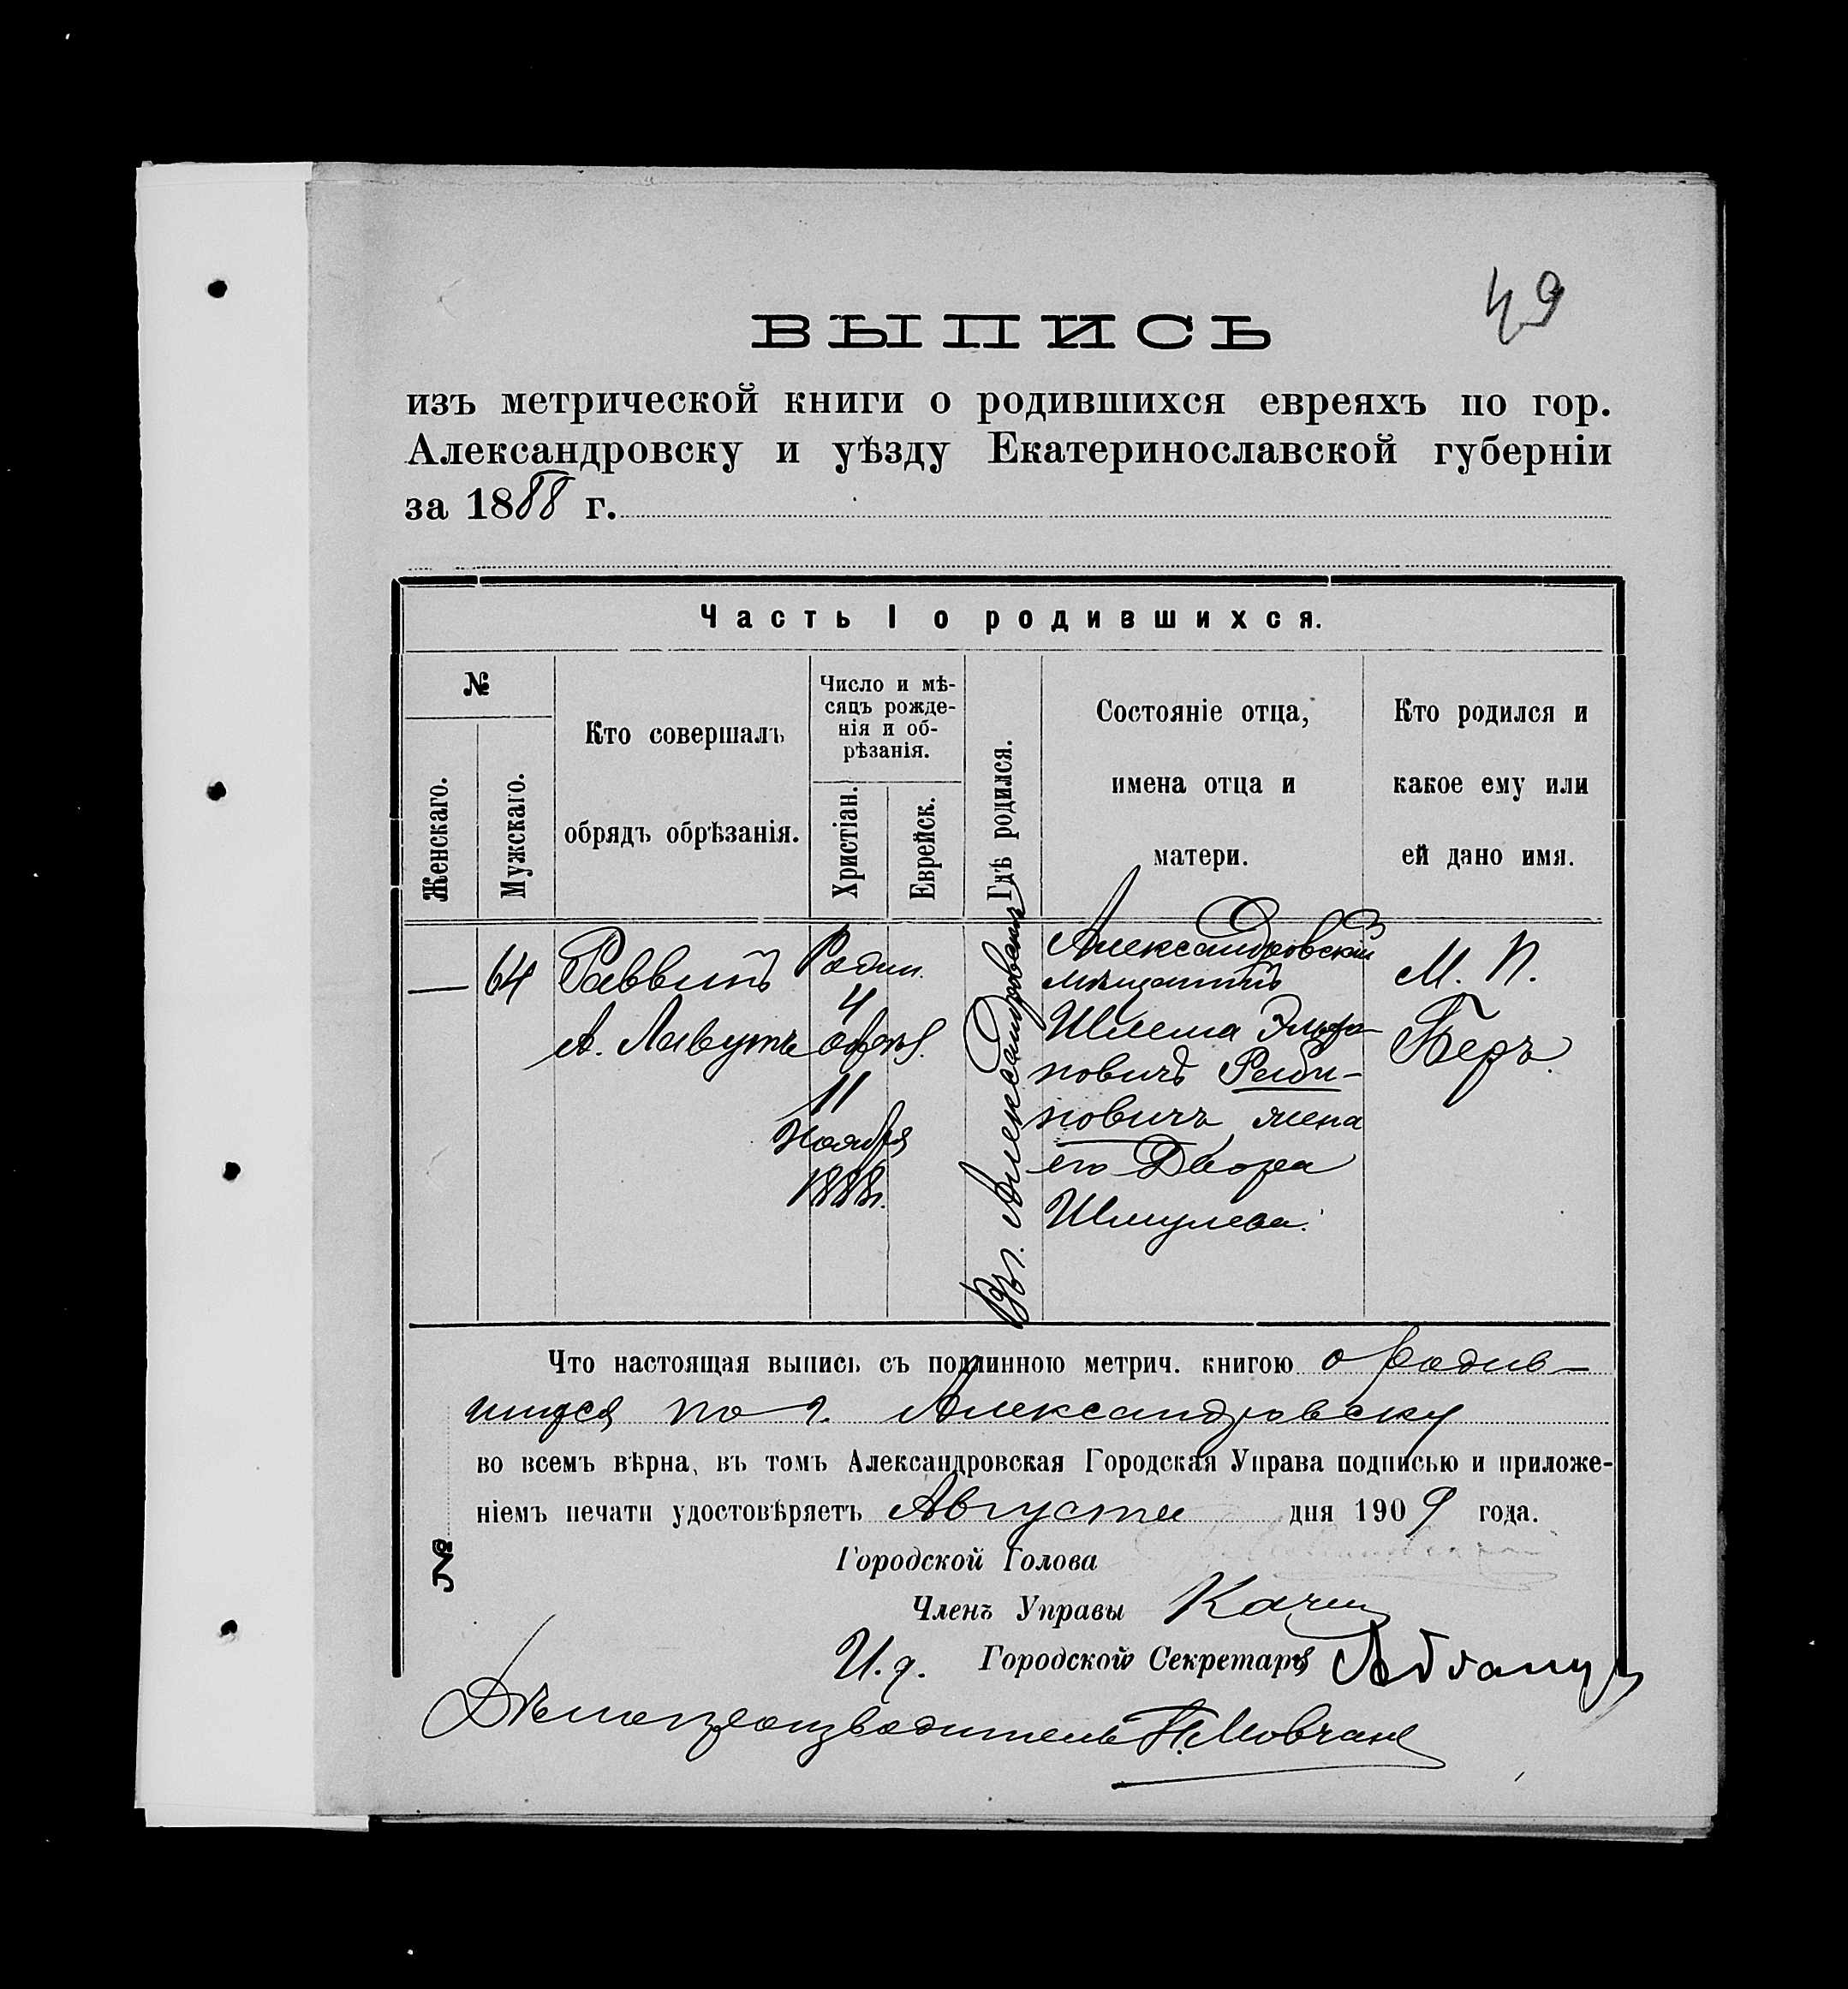 49
ВЫПИСЬ
изъ метрической книги о родившихся евреяхъ по гор.
Александровску и уѣзду Екатеринославской губерніи
за 1888 г.
Часть I о родившихся.
№
Женскаго.
Мужскаго.
Кто совершалъ
обрядъ обрѣзанія.
Число и мѣ-
сяцъ рожде-
нія и об-
рѣзанія.
Христіан.
Еврейск.
Гдѣ родился.
Состояніе отца,
имена отца и
матери.
Кто родился и
какое ему или
ей дано имя.
—
64
Раввинъ
А. Лавутъ
Родил.
4
обрѣз.
11
Ноября
1888г.
Въ г. Александровскѣ
Александровскій
мѣщанинъ
Шлема
новичъ Раби-
новичъ жена
его Двора
Шмулева.
М. П.
Беръ.
Что настоящая выпись съ подлинною метрич. книгою о родив-
шихся по г. Александровску
во всемъ вѣрна, въ томъ Александровская Городская Управа подписью и приложе-
ніемъ печати удостовѣряетъ Августа дня 1909 года.
№
Городской Голова
Членъ Управы
И. д. Городской Секретарь
Дѣлопроизводитель Н. Мовчан